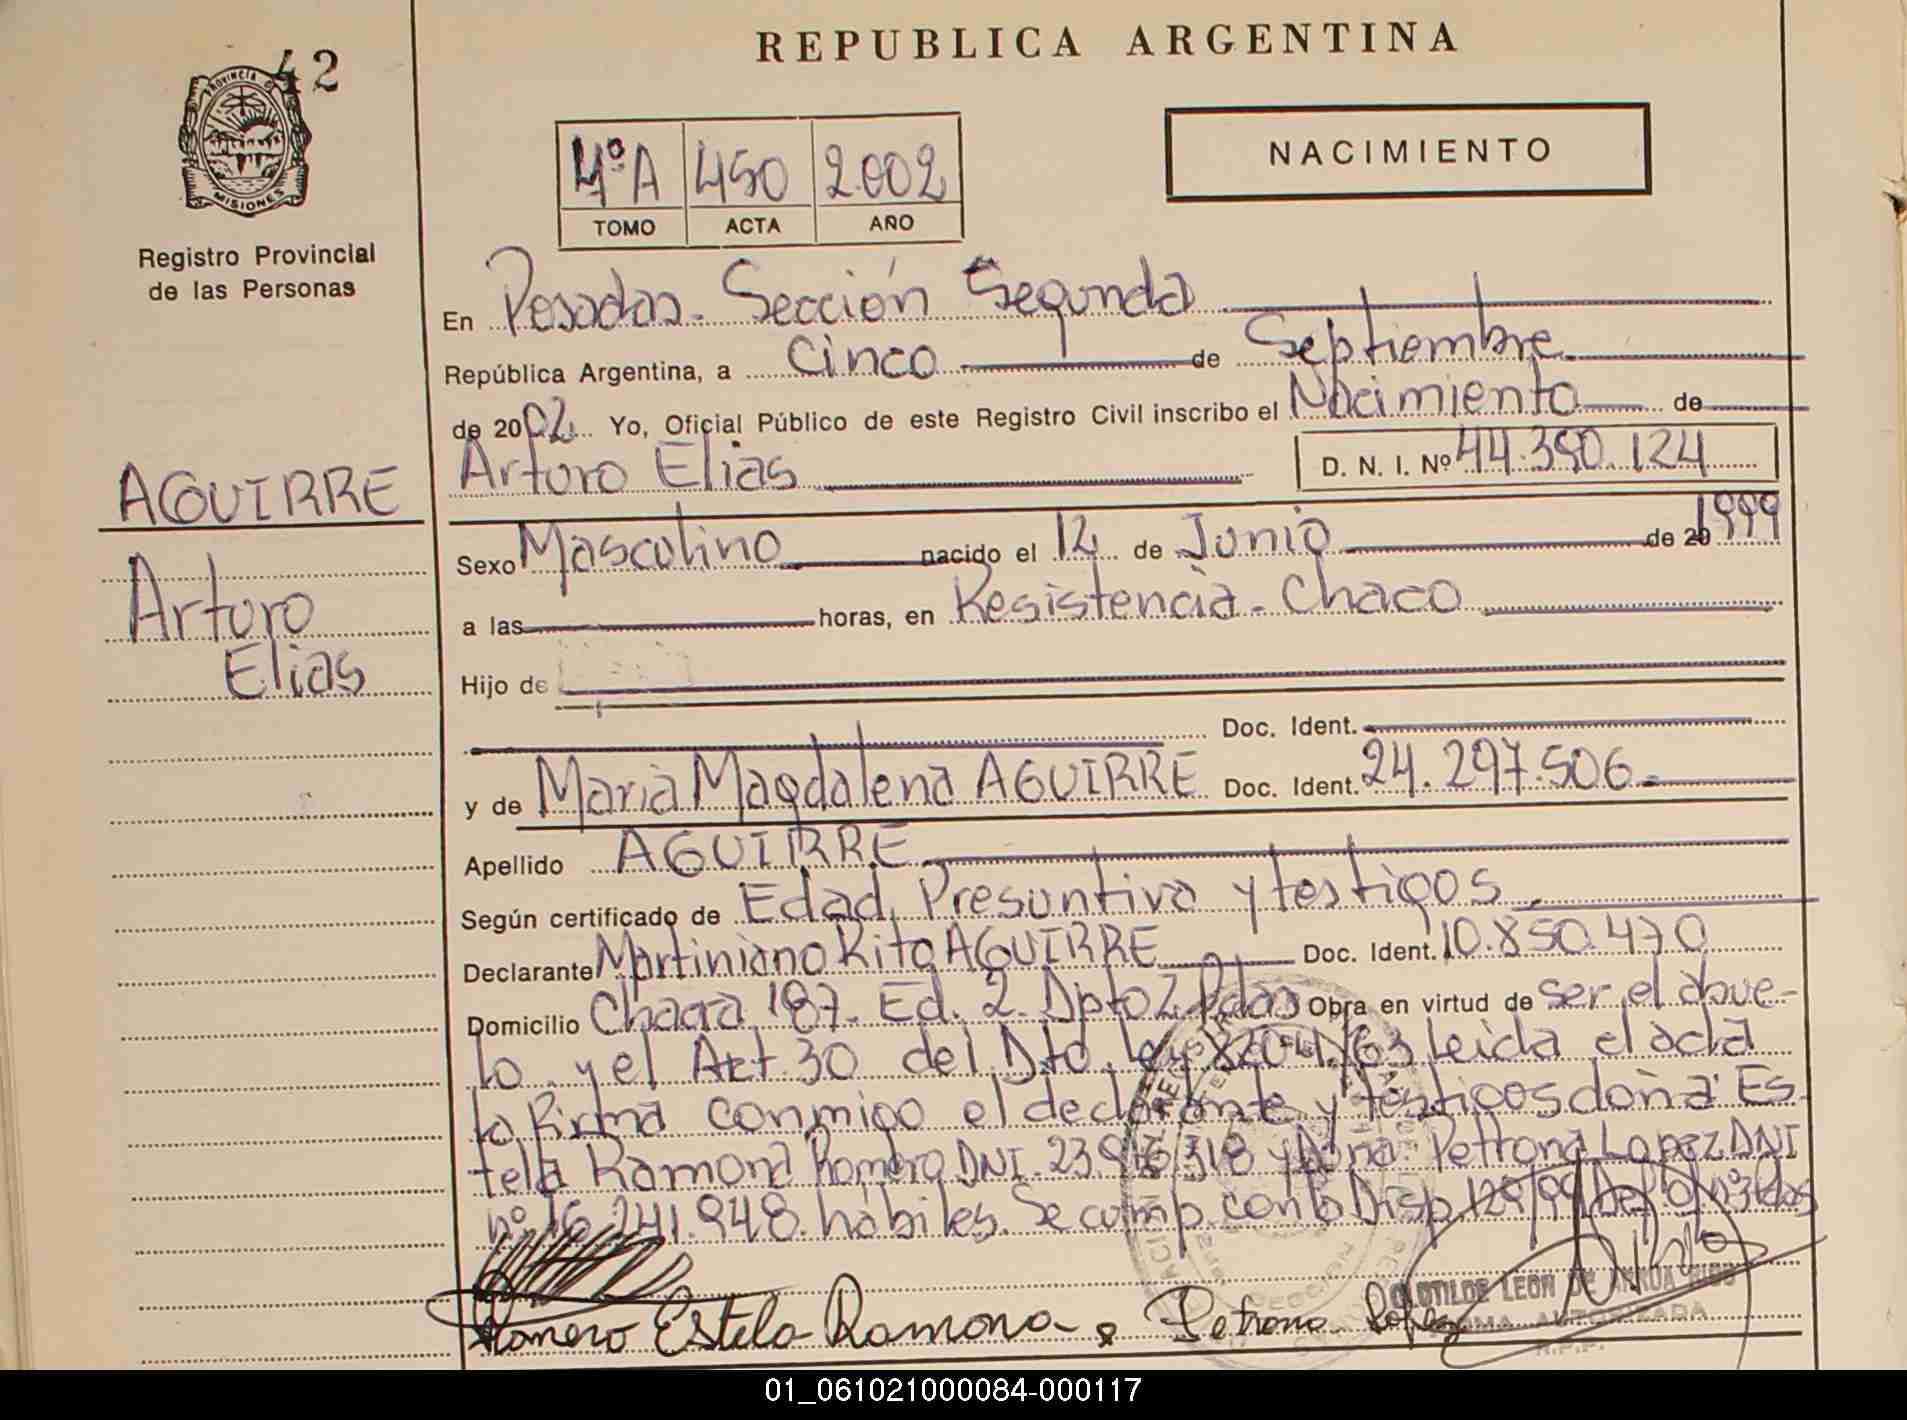 42
REPUBLICA ARGENTINA
PROVINCIA DE
MISIONES
Registro Provincial
de las Personas
4ºA 450 2.002
TOMO ACTA AÑO
NACIMIENTO
En Posadas. Sección Segunda
República Argentina, a Cinco de Septiembre
de 2002 Yo, Oficial Público de este Registro Civil inscribo el Nacimiento de
Arturo Elias D. N. I. Nº 44.390.124
AGUIRRE
Arturo
Elias
Sexo Masculino nacido el 12 de Junio de 20 1999
a las horas, en Resistencia - Chaco
Hijo de
Doc. Ident.
y de Maria Magdalena AGUIRRE Doc. Ident. 24.297.506.-
Apellido AGUIRRE
Según certificado de Edad Presuntiva y testigos.
Declarante Martiniano Rito AGUIRRE Doc. Ident. 10.850.470
Domicilio Chacra 187. Ed. 2. Dpto Z. Pdas Obra en virtud de ser el abue-
lo y el Art. 30 del Dto. Ley 8204/63 leida el acta
la firma conmigo el declarante y testigos doña Es-
tela Ramona Romero DNI. 23.916.318 y doña Petrona Lopez DNI
nº 16.241.948. hábiles. Se cump. con la Disp. 129/99
Romero Estela Ramona Petrona Lopez
CLOTILDE LEON DE
FIRMA AUTORIZADA
R.P.P.
01_061021000084-000117